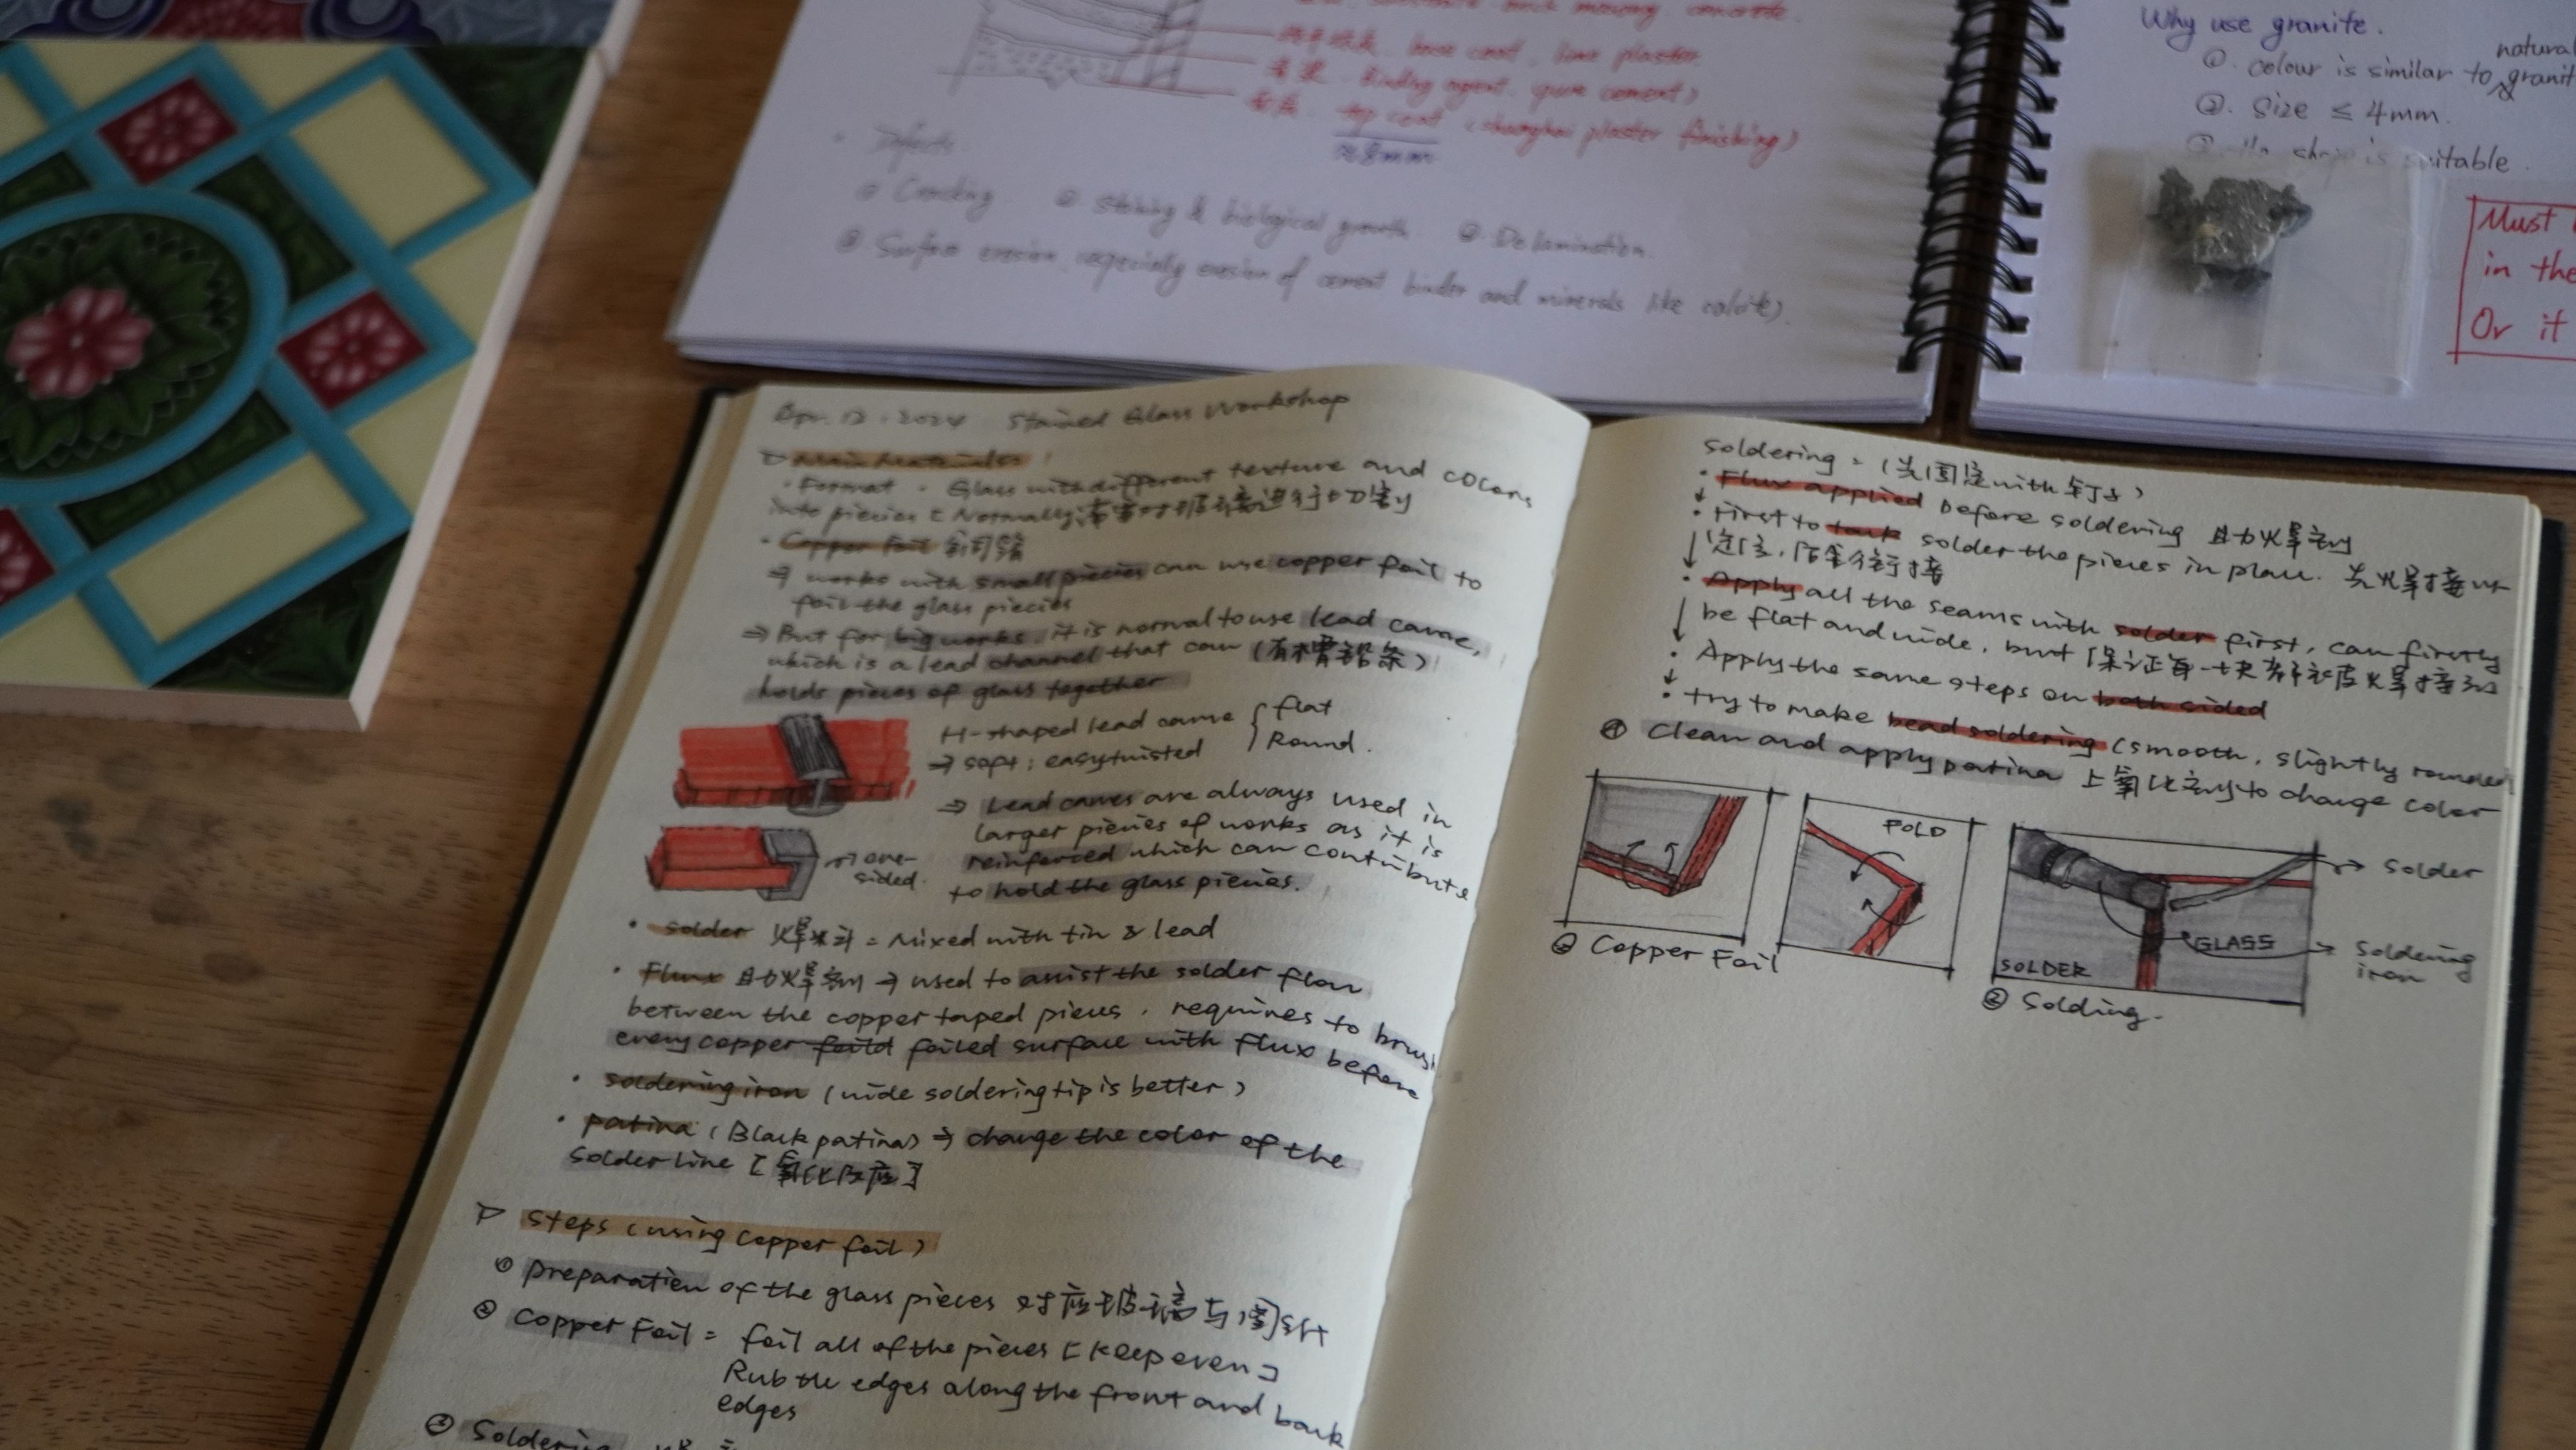 base coat, lime plaster
binding agent (pure cement)
top coat (shanghai plaster finishing)
≈8mm
Defects
① Cracking ② Staining & biological growth ③ Delamination.
Surface erosion, especially erosion of cement binder and minerals like calcite).
Why use granite.
①. colour is similar to natural granit
②. Size ≤ 4mm.
suitable.
Must
in the
Or it
Apr. 12. 2024 Stained Glass Workshop
▷ Main Materials
· Format · Glass with different texture and colors
into piecies [Normally 需要对玻璃进行切割
· Copper foil 铜箔
⇒ works with small piecies can use copper foil to
foil the glass piecies
⇒ But for big works, it is normal to use lead came,
which is a lead channel that can (有槽铅条)
holds pieces of glass together
H-shaped lead came { flat
Round.
→ soft; easy twisted
⇒ Lead cames are always used in
larger piecies of works as it is
reinforced which can contribute
to hold the glass piecies.
one-
sided.
· solder 焊料 = Mixed with tin & lead
· Flux 助焊剂 → used to assist the solder flow
between the copper taped pieces. requires to brush
every copper foild foiled surface with flux before
· soldering iron (wide soldering tip is better)
· patina (Black patina) → change the color of the
solder line [氧化反应]
▷ Steps (using copper foil)
① preparation of the glass pieces 对应玻璃与图纸
② Copper Foil = foil all of the pieces [keep even]
Rub the edges along the front and back
edges
③ Soldering
soldering = (先固定with钉子)
· Flux applied before soldering 助焊剂
· First to tack solder the pieces in place. 先焊接以
定位,后全衔接
· Apply all the seams with solder first, can firstly
be flat and wide, but [保证每一块都被焊接到
· Apply the same steps on both sided
· try to make bead soldering (smooth, slightly rounded
④ Clean and apply patina 上氧化剂 to change color
FOLD
① Copper Foil
Solder
GLASS
Soldering
iron
SOLDER
② Solding.